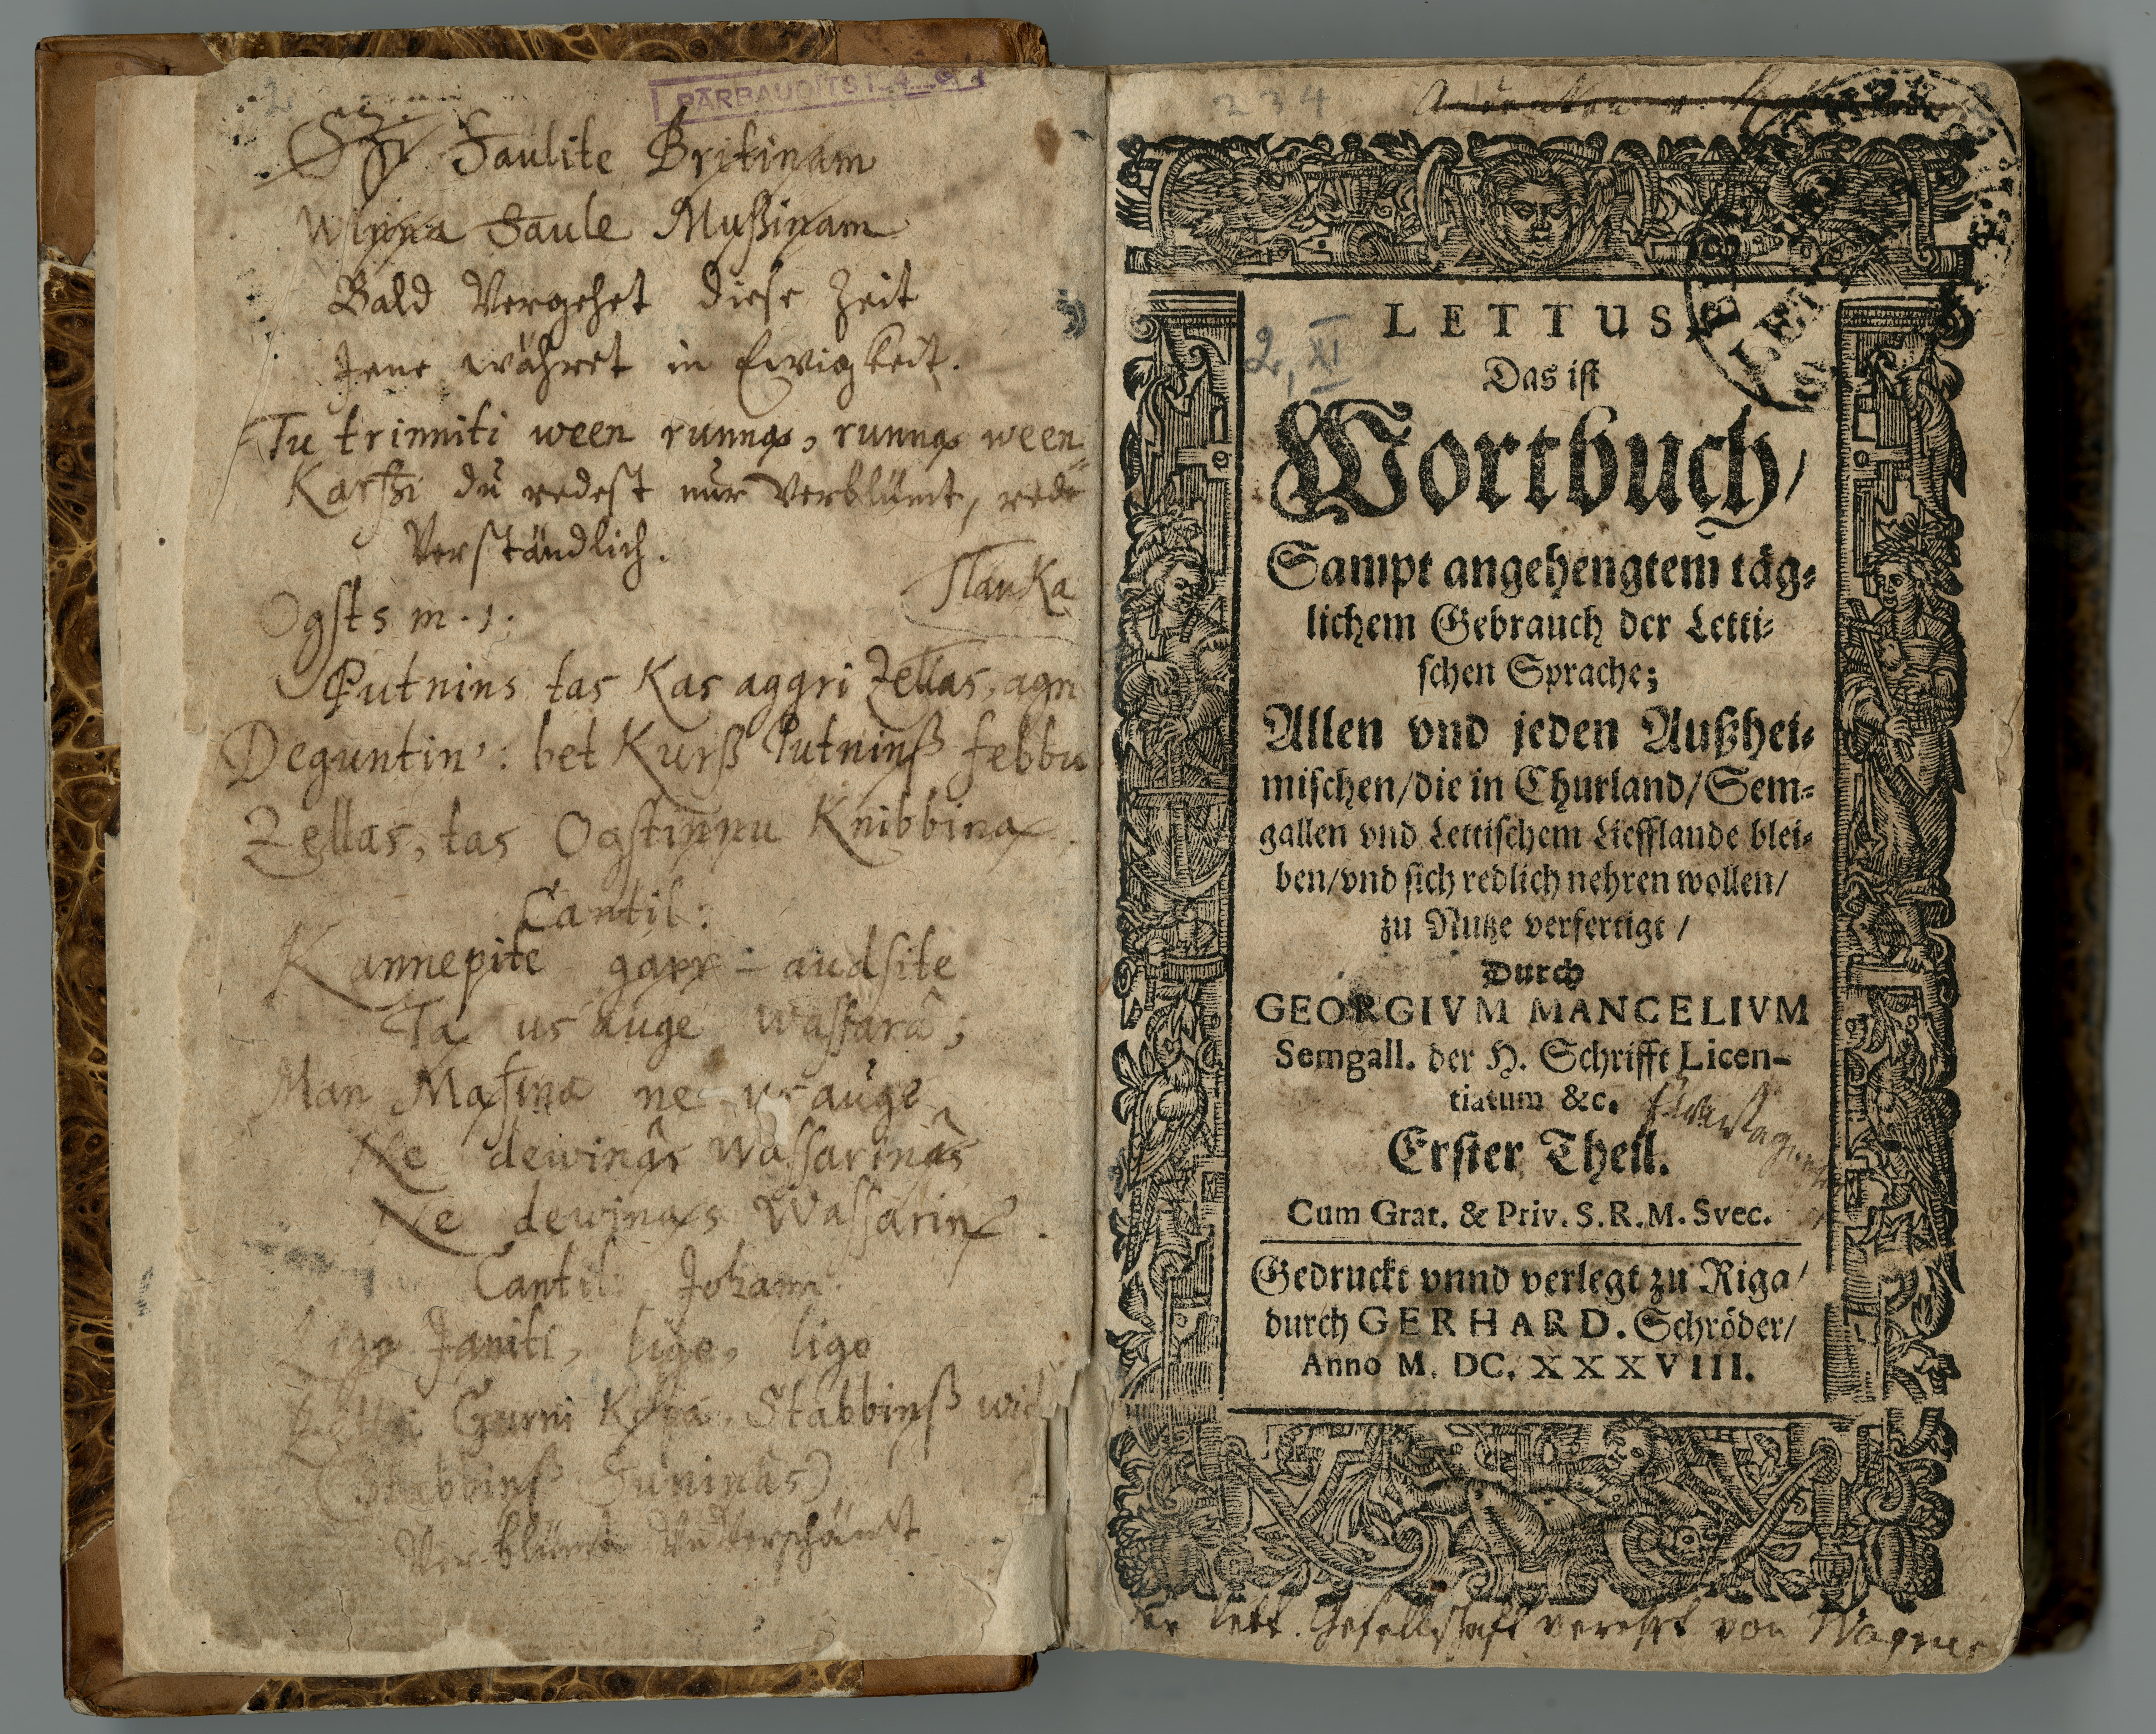 PĀRBAUDĪTS
Szi Saulite Britinam
Winna Saule Mußinam
Bald Vergehet diese Zeit
Jene währet in Ewigkeit.
Tu trinniti ween runna, runna ween
Karſzi du redest nur verblümt, rede
Verständlich.
Slauka
Ogſts m. 1.
Putnins tas Kas aggri Zellas, agri
Deguntin': bet Kurß Putninß ſebbu
Zellas, tas Ogſtinnu Knibbina
Cantil:
Kannepite garr-audſite
Ta us auge waſſarâ;
Man Maſina ne us auge
Ne dewinâs Waſſarinâs
Ne dewinas Waſſarin
Cantil: Johann:
Ligo Janiti, ligo, ligo
Gurni Kopa, Stabbinß
(Stabbinß Suninâs)
Verblümt Unverschämt
234
2, XI
LETTUS,
Das iſt
Wortbuch/
Sampt angehengtem täg⸗
lichem Gebrauch der Letti⸗
ſchen Sprache;
Allen vnd jeden Außhei⸗
miſchen/die in Churland/Sem⸗
gallen vnd Lettiſchem Liefflande blei⸗
ben/vnd ſich redlich nehren wollen/
zu Nutze verfertigt/
Durch
GEORGIVM MANCELIVM
Semgall. der H. Schrifft Licen-
tiatum &c.
Erſter Theil.
Cum Grat. & Priv. S. R. M. Svec.
Gedruckt vnnd verlegt zu Riga/
durch GERHARD. Schröder/
Anno M. DC. XXXVIII.
der lett. Geſellſchaft verehrt von Wagner